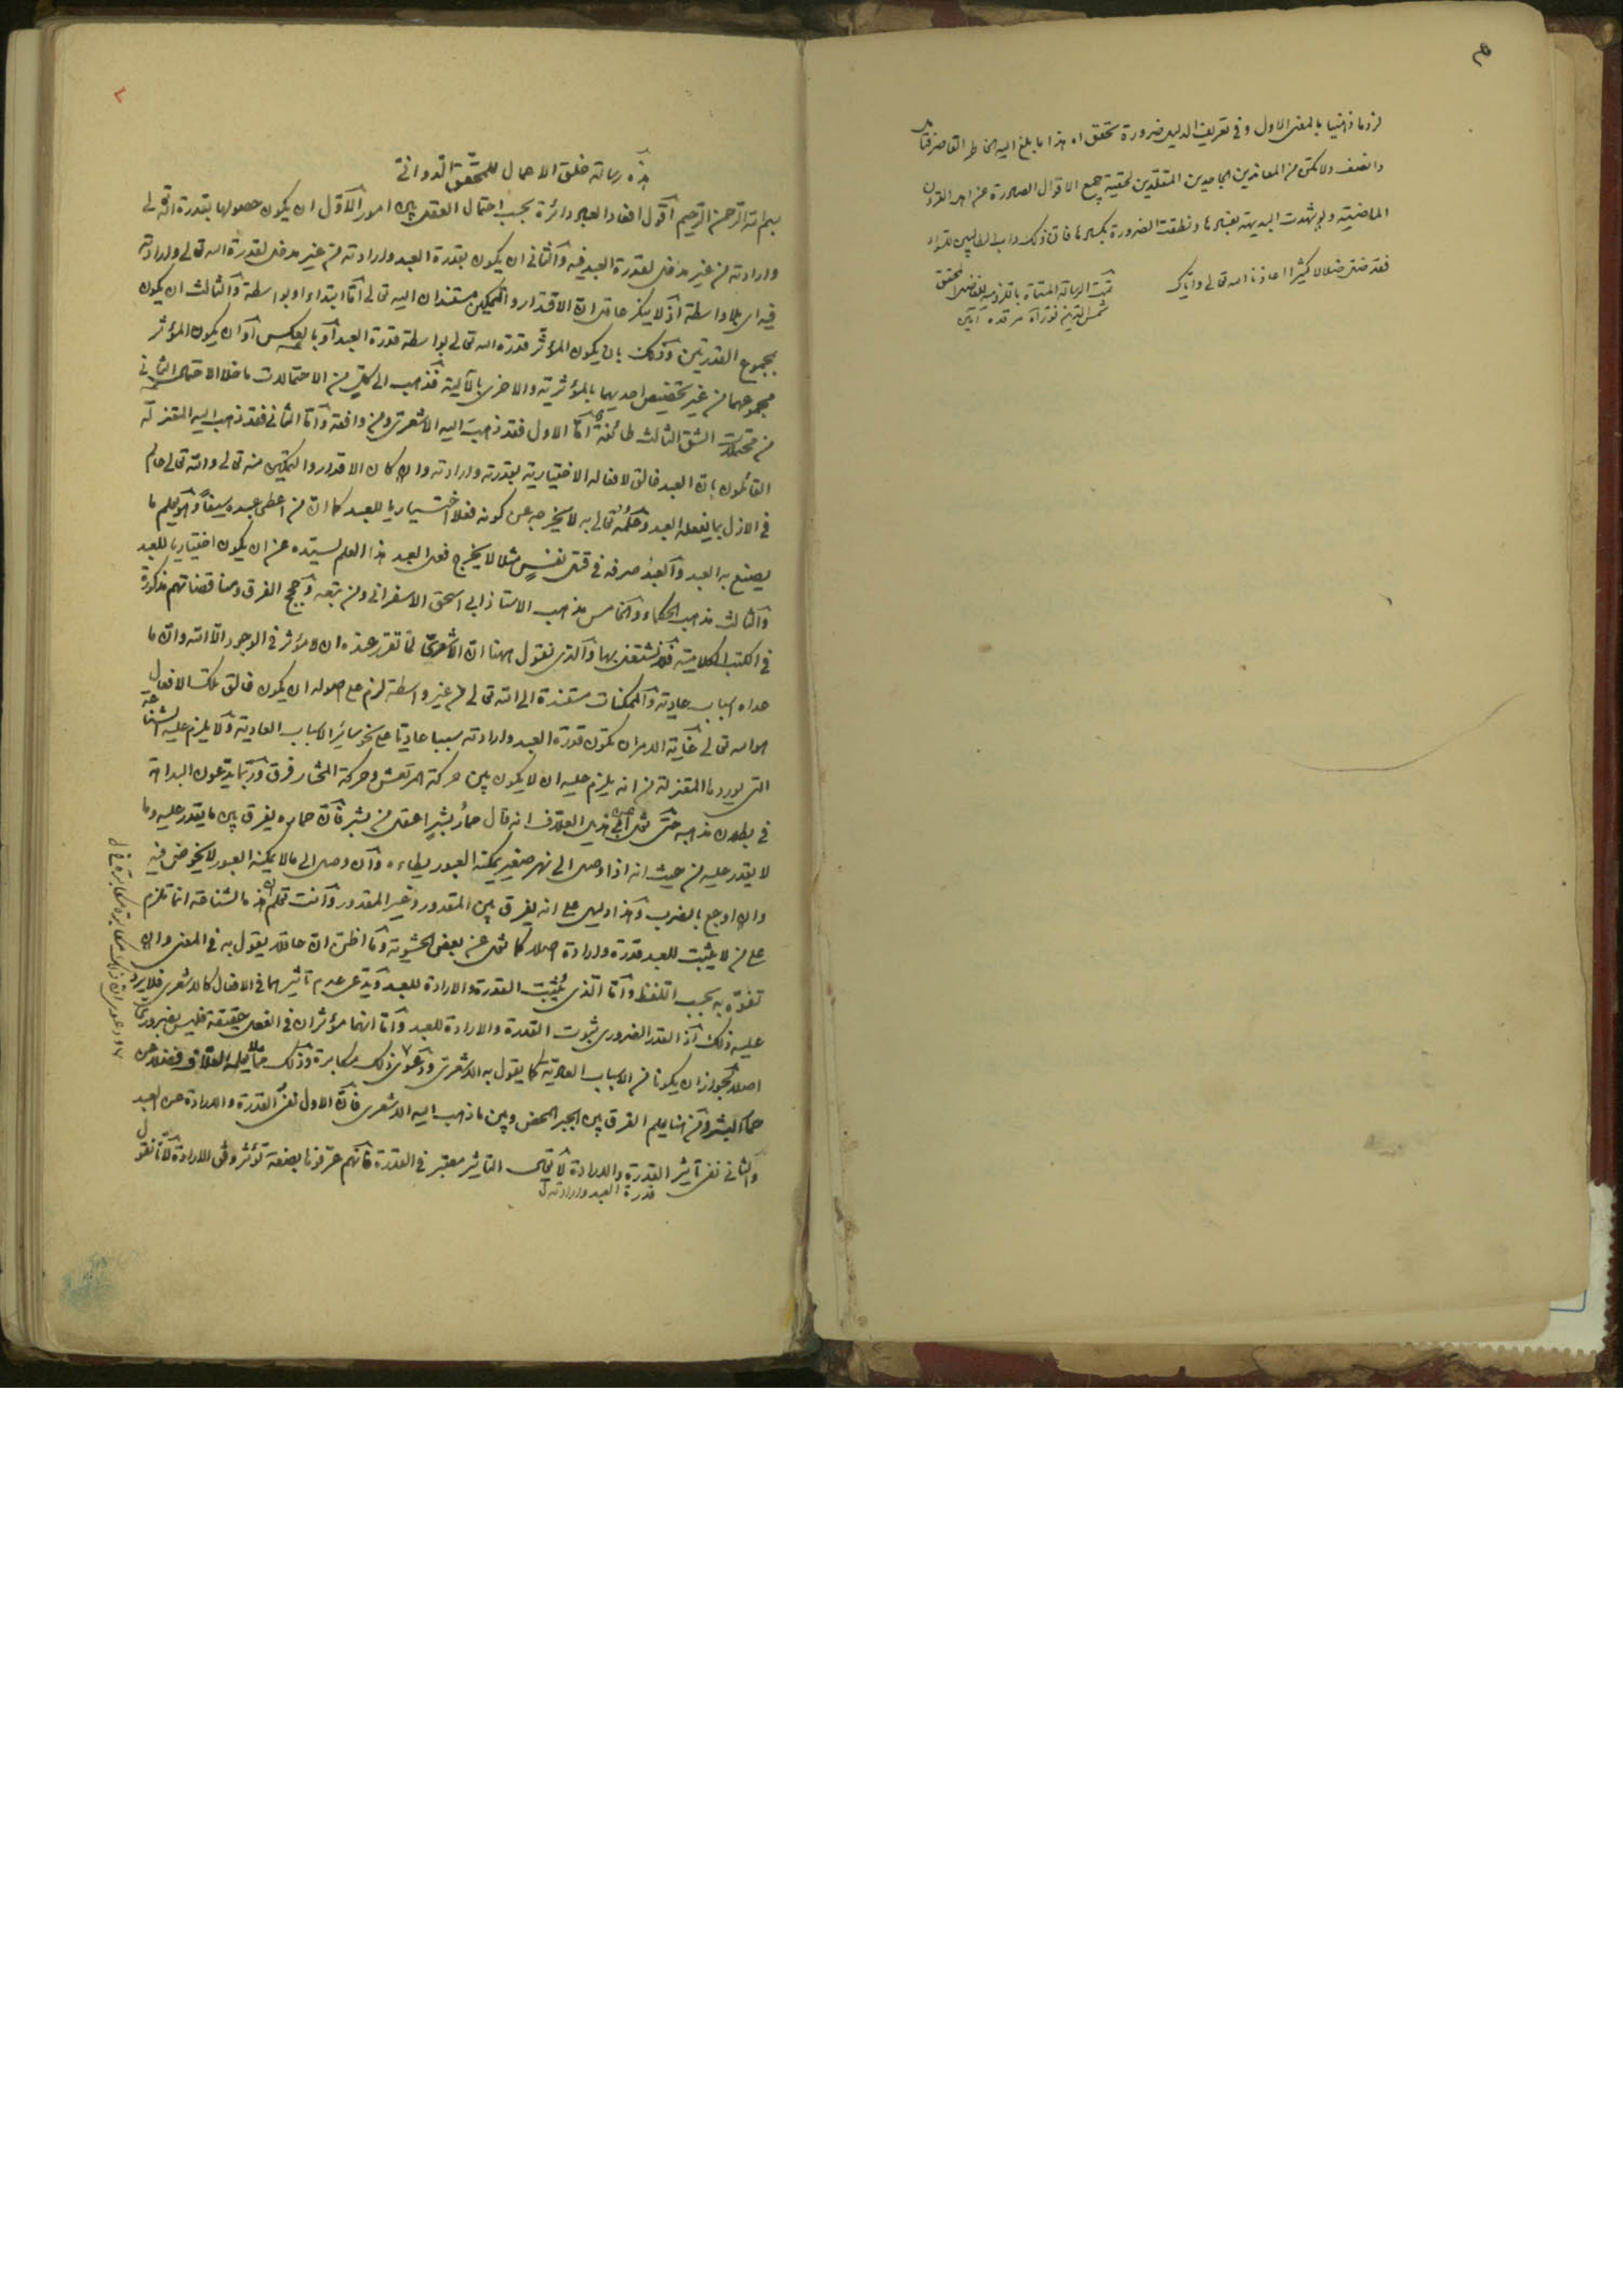 لزوما ذهنيا بالمعنى الاول وفى تعريف الدليل ضرورة تحقق اه هذا ما بلغ اليه الخاطر القاصر فتأمل
وانصف ولا تكن من المعاندين الجامدين المعتقدين لحقية جميع الاقوال الصادرة عن اهل القرون
الماضية ولو شهدت البديهة بغيرها ونطقت الضرورة بكسرها فان ذلك داب الطالبين
فقد ضل ضلالا كثيرا اعاذنا الله تعالى واياك
تمت الرسالة المسماة باللزومية للفاضل المحقق
شمس الدين نور الله مرقده آمين
هذه رسالة خلق الاعمال للمحقق الدوانى
بسم الله الرحمن الرحيم اقول افعال العباد دائرة بحسب احتمال العقل بين امور الاول ان يكون حصولها بقدرة الله تعالى
وارادته من غير مدخل لقدرة العبد فيه والثانى ان يكون بقدرة العبد وارادته من غير مدخل لقدرة الله تعالى وارادته
فيه اى بلا واسطة اذ لا ينكر عاقل ان الاقدار والتمكين مستندان اليه تعالى اما ابتداء او بواسطة والثالث ان يكون
بمجموع القدرتين وذلك بان يكون المؤثر قدرة الله تعالى بواسطة قدرة العبد او بالعكس او ان يكون المؤثر
مجموعهما من غير تخصيص احديهما بالمؤثرية والاخرى بالآلية فذهب الى كل من الاحتمالات ما خلا الاحتمال الثانى
من محتملات الشق الثالث طائفة اما الاول فقد ذهب اليه الاشعرى ومن وافقه واما الثانى فقد ذهب اليه المعتزلة
القائلون بان العبد خالق لافعاله الاختيارية بقدرته وارادته وان كان الاقدار والتمكين منه تعالى والله تعالى عالم
فى الازل بما يفعله العبد وعلمه تعالى به لا يخرجه عن كونه فعلا اختياريا للعبد كما ان من اعطى عبده سيفا وهو يعلم ما
يصنع به العبد والعبد صرفه فى قتل نفس مثلا لا يخرج فعل العبد هذا العلم لسيده عن ان يكون اختياريا للعبد
والثالث مذهب الحكماء والخامس مذهب الاستاذ ابى اسحق الاسفرانى ومن تبعه وحجج الفرق ومناقضاتهم مذكورة
فى الكتب الكلامية فلا نشتغل بها والذى نقول ههنا ان الاشعرى لما تقرر عنده ان لا مؤثر فى الوجود الا الله وان ما
عداه اسباب عادية والممكنات مستندة الى الله تعالى من غير واسطة لزم على اصوله ان يكون خالق تلك الافعال
هو الله تعالى غاية الامر ان تكون قدرة العبد وارادته سببا عاديا على نحو سائر الاسباب العادية ولا يلزم عليه الشناعة
التى يوردها المعتزلة من انه يلزم عليه ان لا يكون بين حركة المرتعش وحركة المختار فرق وربما يدعون البداهة
فى بطلان مذهبه حتى نقل عن ابى هذيل العلاف انه قال حمار بشر اعقل من بشر فان حماره يفرق بين ما يقدر عليه وما
لا يقدر عليه من حيث انه اذا وصل الى نهر صغير يمكنه العبور يطاءه وان وصل الى ما لا يمكنه العبور لا يخوض فيه
وان اوجع بالضرب وهذا دليل على انه يفرق بين المقدور وغير المقدور وانت تعلم ان هذه الشناعة انما تلزم
على من لا يثبت للعبد قدرة وارادة اصلا كما نقل عن بعض الحشوية وما اظن ان عاقلا يقول به فى المعنى وان
تفوه به بحسب اللفظ واما الذى يثبت القدرة والارادة للعبد ويدعى عدم تاثيرهما فى الافعال كالاشعرى فلا يرد
عليه ذلك اذ القدر الضرورى ثبوت القدرة والارادة للعبد واما انهما مؤثران فى الفعل حقيقة فليس بضرورى
اصلا لجواز ان يكونا من الاسباب العادية كما يقول به الاشعرى ودعوى ذلك مكابرة وذلك مما لا يعلمه العلاف فضلا عن
حمار البشر ومن هنا يعلم الفرق بين الجبر المحض وبين ما ذهب اليه الاشعرى فان الاول نفى القدرة والارادة عن العبد
والثانى نفى تاثير القدرة والارادة لا يقال التاثير معتبر فى القدرة فانهم عرفوها بصفة تؤثر وفق الارادة لانا نقول
قدرة العبد وارادته